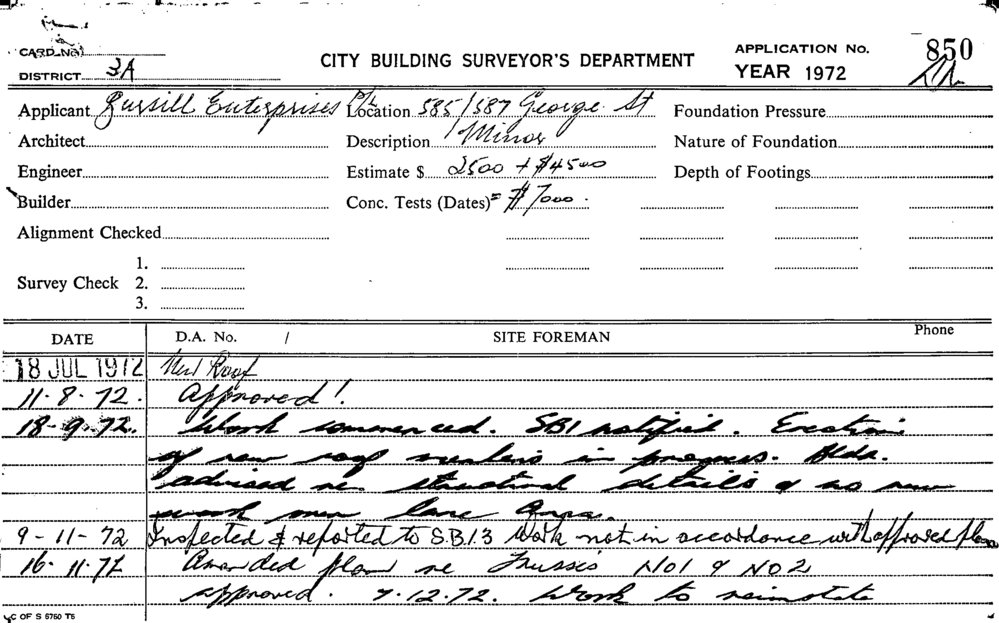 CARD No.
DISTRICT 3A
CITY BUILDING SURVEYOR'S DEPARTMENT
APPLICATION No. 850
YEAR 1972
Applicant Enterprises P/L Location 585/587 George St Foundation Pressure
Architect Description Minor Nature of Foundation
Engineer Estimate $ 2500 + $4500 Depth of Footings
Builder Conc. Tests (Dates) = $7000.
Alignment Checked
Survey Check 1.
2.
3.
DATE D.A. No. / SITE FOREMAN Phone
18 JUL 1972 New Roof
11-8-72. Approved!
18-9-72. Work commenced. SBI notified. Erection
of new roof members in progress. Bldr.
advised re structural details & no new
work lane
9-11-72 Inspected & reported to S.B.I.3 Work not in accordance with approved plan
16-11-72 Amended plan re Trusses No1 & No2
approved. 7.12.72. Work to reinstate
C OF S 6760 T5